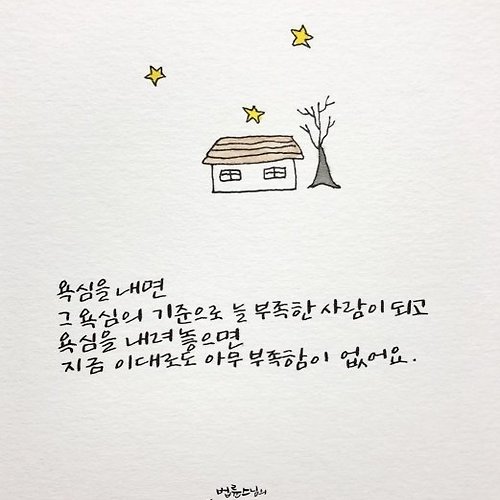 욕심을 내면
그 욕심의 기준으로 늘 부족한 사람이 되고
욕심을 내려놓으면
지금 이대로도 아무 부족함이 없어요.
법륜스님의